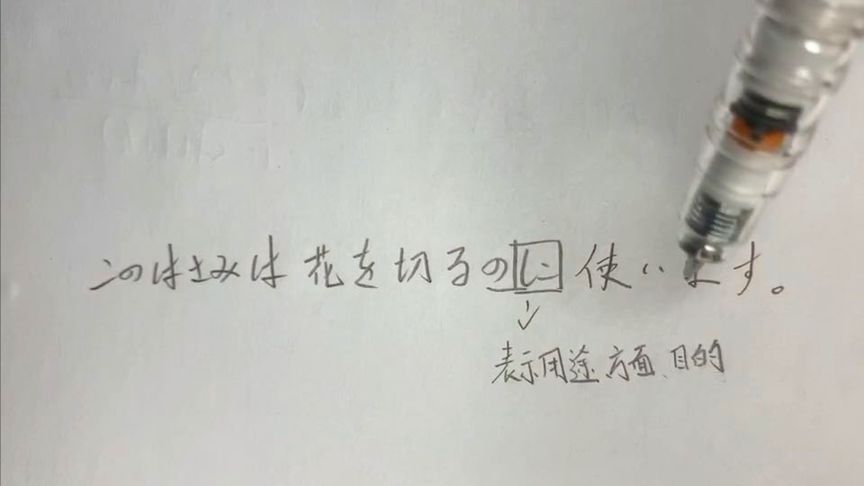 このはさみは花を切るのに使います。
表示用途、方面、目的